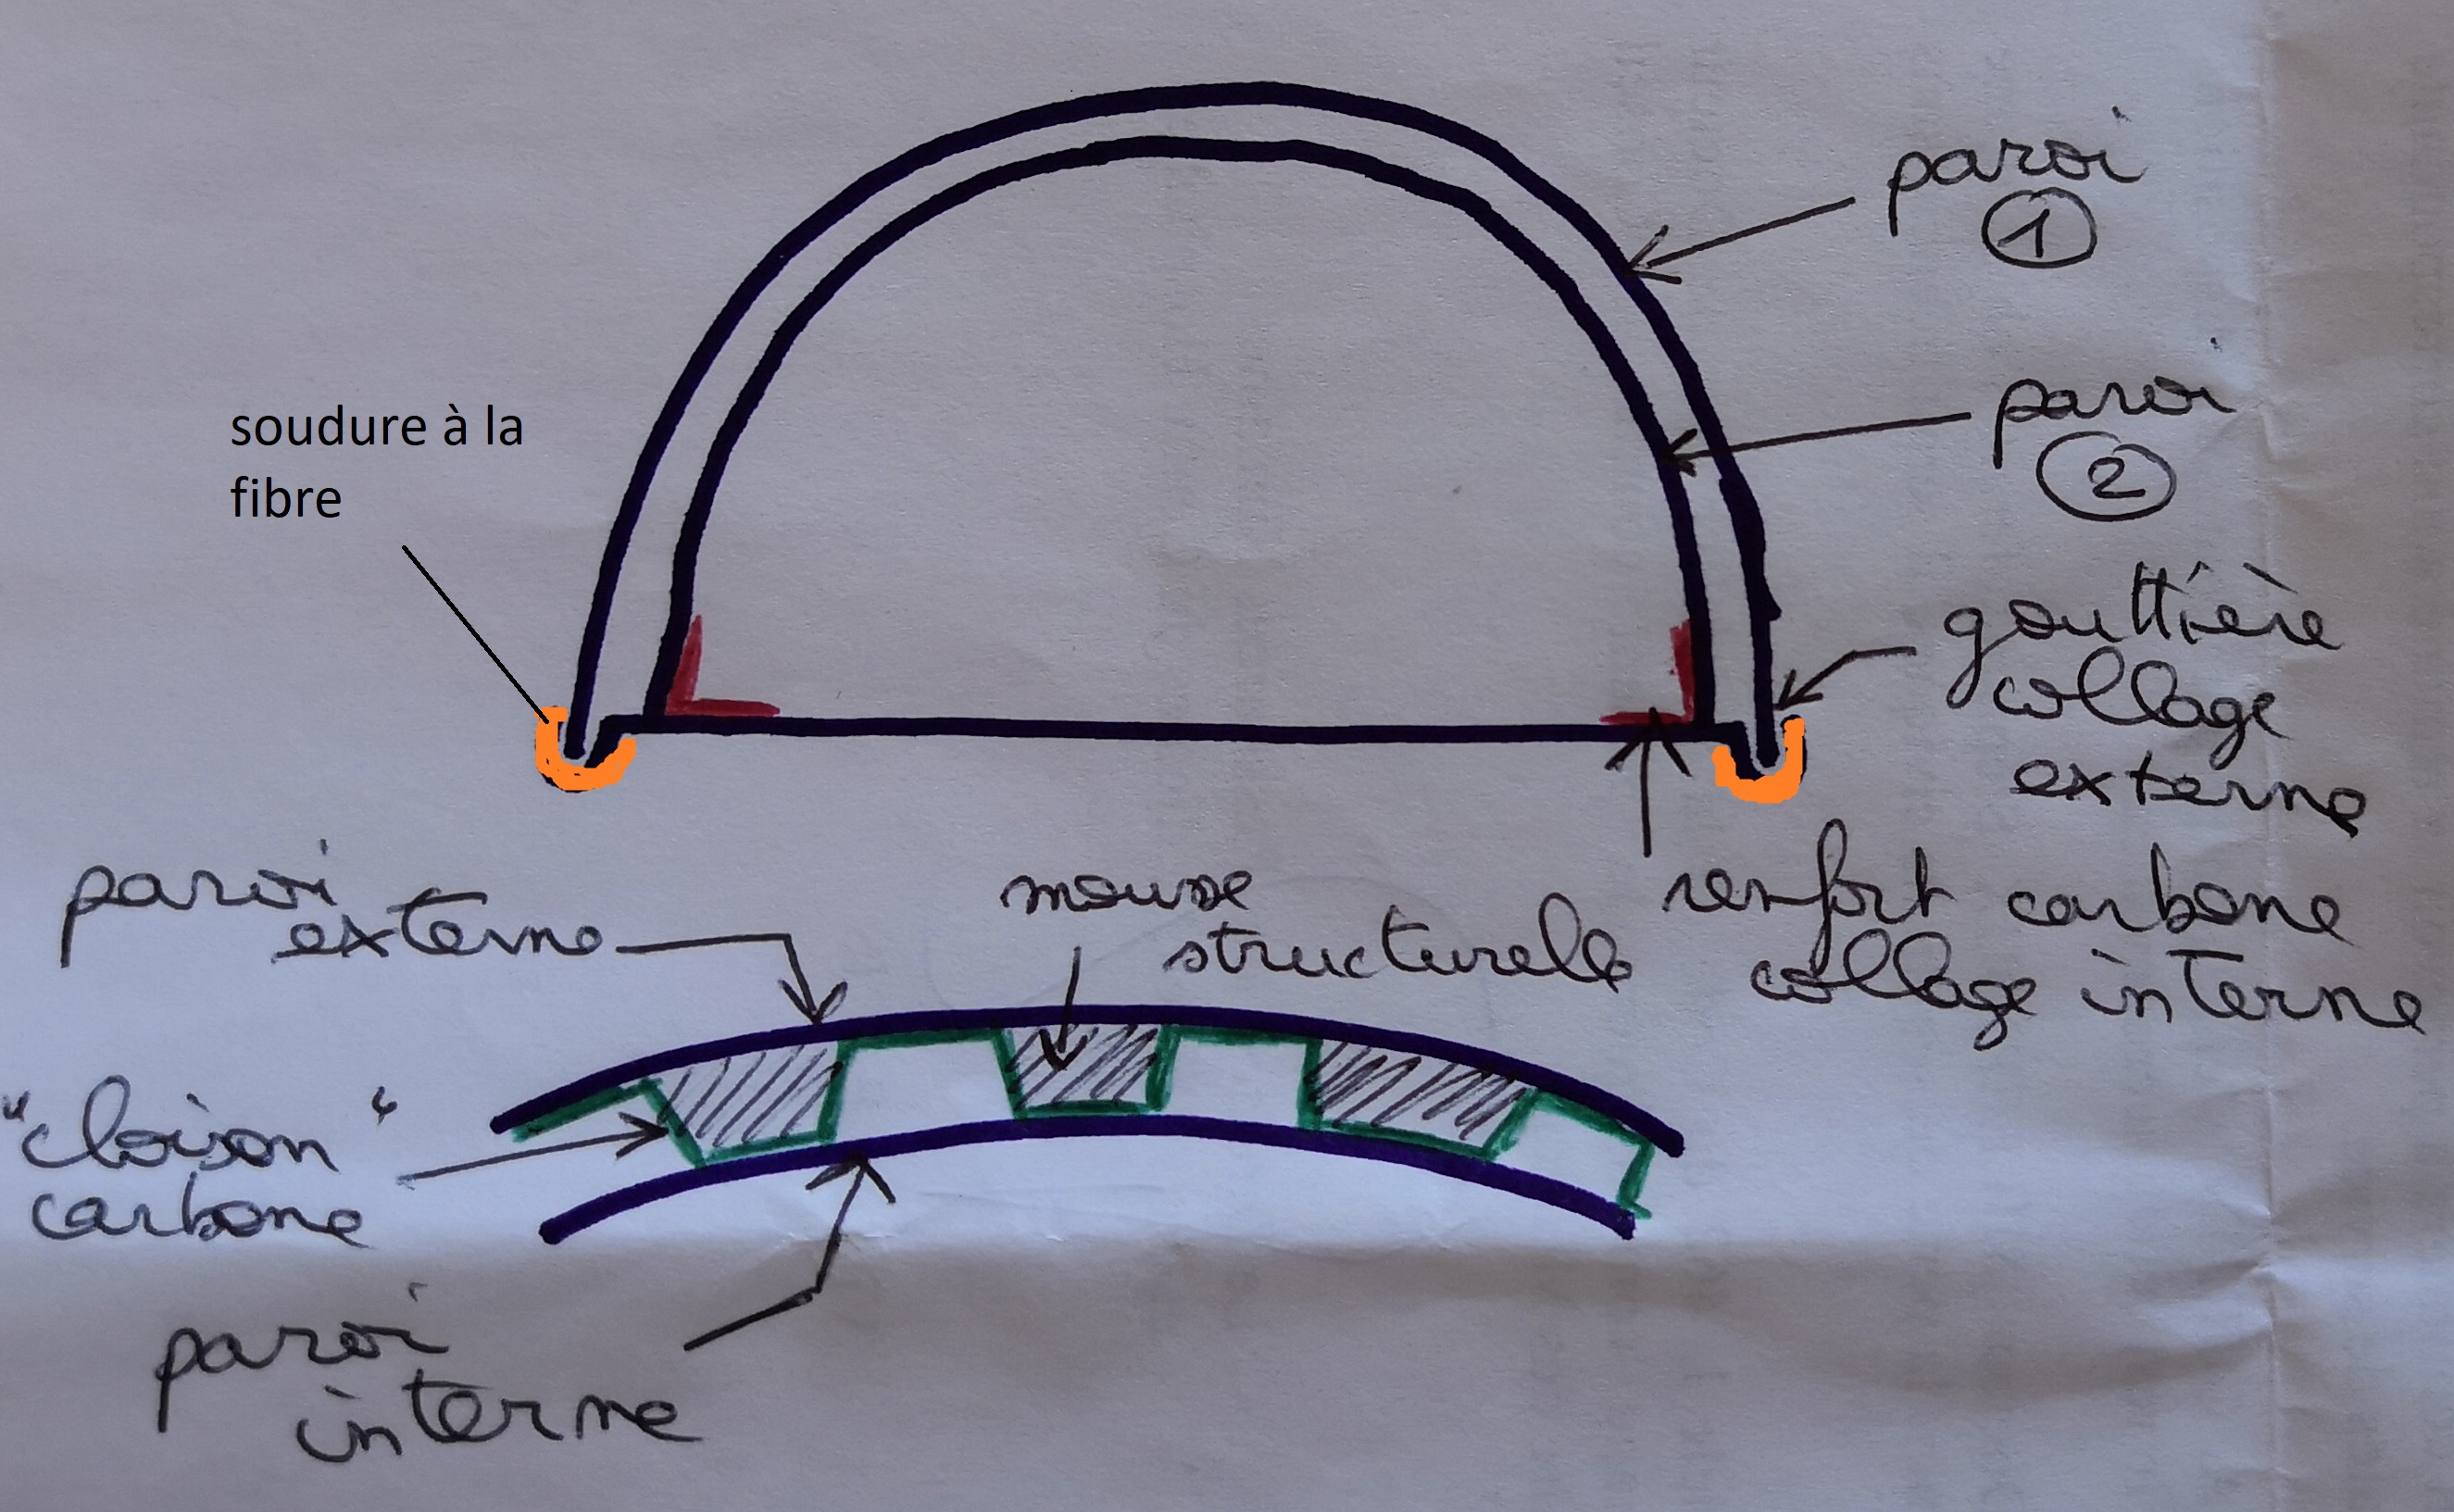 paroi
①
paroi
②
soudure à la
fibre
gouttière
collage
externe
renfort carbone
collage interne
paroi
externe
mousse
structurelle
"cloison"
carbone
paroi
interne